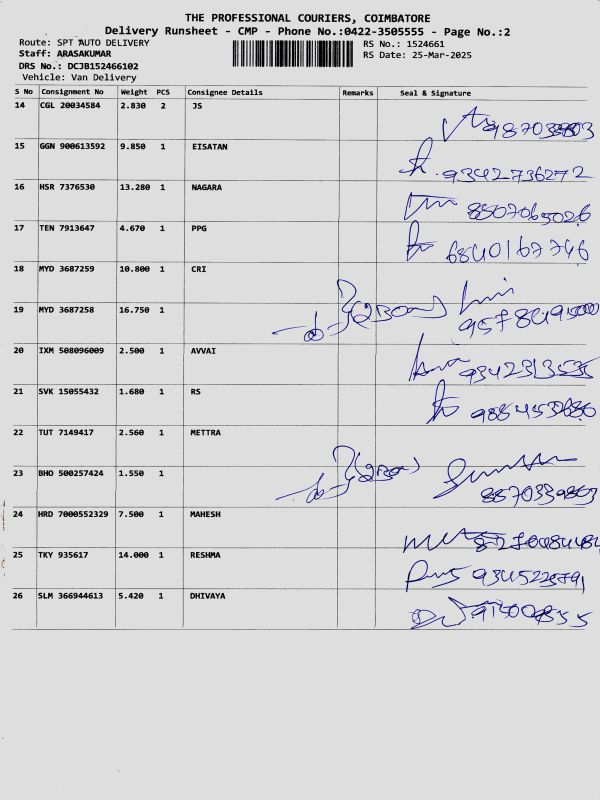 THE PROFESSIONAL COURIERS, COIMBATORE
Delivery Runsheet - CMP - Phone No.:0422-3505555 - Page No.:2
Route: SPT AUTO DELIVERY
RS No.: 1524661
Staff: ARASAKUMAR
RS Date: 25-Mar-2025
DRS No.: DCJB152466102
Vehicle: Van Delivery
S No Consignment No Weight PCS Consignee Details Remarks Seal & Signature
14 CGL 20034584 2.830 2 JS
15 GGN 900613592 9.850 1 EISATAN
9342736272
16 HSR 7376530 13.280 1 NAGARA
8507065026
17 TEN 7913647 4.670 1 PPG
6840167746
18 MYD 3687259 10.800 1 CRI
19 MYD 3687258 16.750 1
20 IXM 508096009 2.500 1 AVVAI
9342313535
21 SVK 15055432 1.680 1 RS
22 TUT 7149417 2.560 1 METTRA
23 BHO 500257424 1.550 1
24 HRD 7000552329 7.500 1 MAHESH
25 TKY 935617 14.000 1 RESHMA
26 SLM 366944613 5.420 1 DHIVAYA